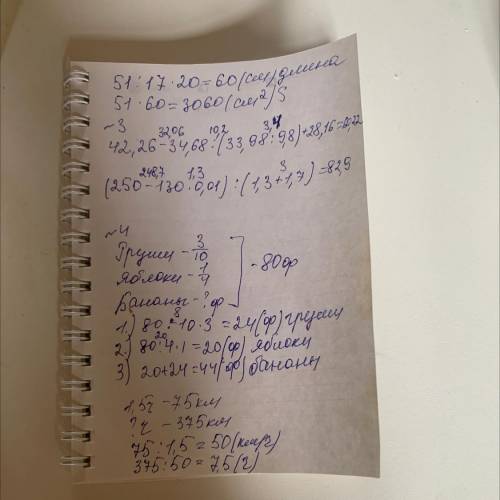 51:17·20=60(см) длина
51·60=3060(см²) S
~3
32,06 10,2 3,4
42,26-34,68:(33,98:9,8)+28,16=
248,7 1,3 3
(250-130·0,01):(1,3+1,7)=82,9
~4
Груши-3/10
Яблоки-1/4 -80ф
Бананы-?ф
8
1.) 80:10·3=24(ф) груши
20
2.) 80:4·1=20(ф) яблоки
3) 20+24=44(ф) бананы
1,5ч-75км
?ч-375км
75:1,5=50(км/ч)
375:50=7,5(ч)